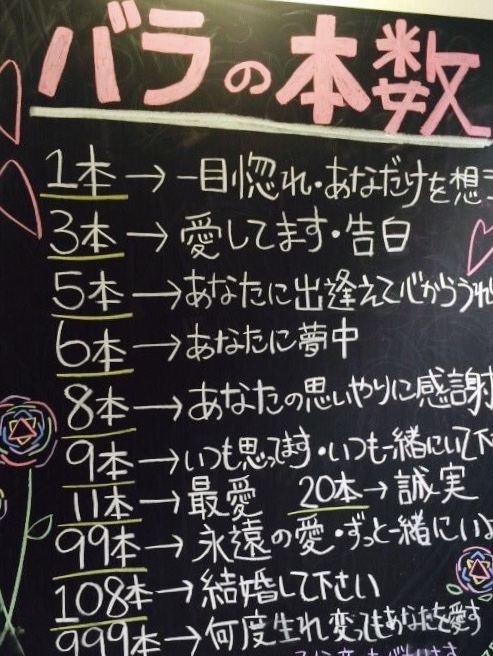 バラの本数
1本→一目惚れ・あなただけを想う
3本→愛してます・告白
5本→あなたに出逢えて心からうれ
6本→あなたに夢中
8本→あなたの思いやりに感謝
9本→いつも思ってます・いつも一緒にいて下
11本→最愛 20本→誠実
99本→永遠の愛・ずっと一緒にいよ
108本→結婚して下さい
999本→何度生れ変ってもあなたを愛す